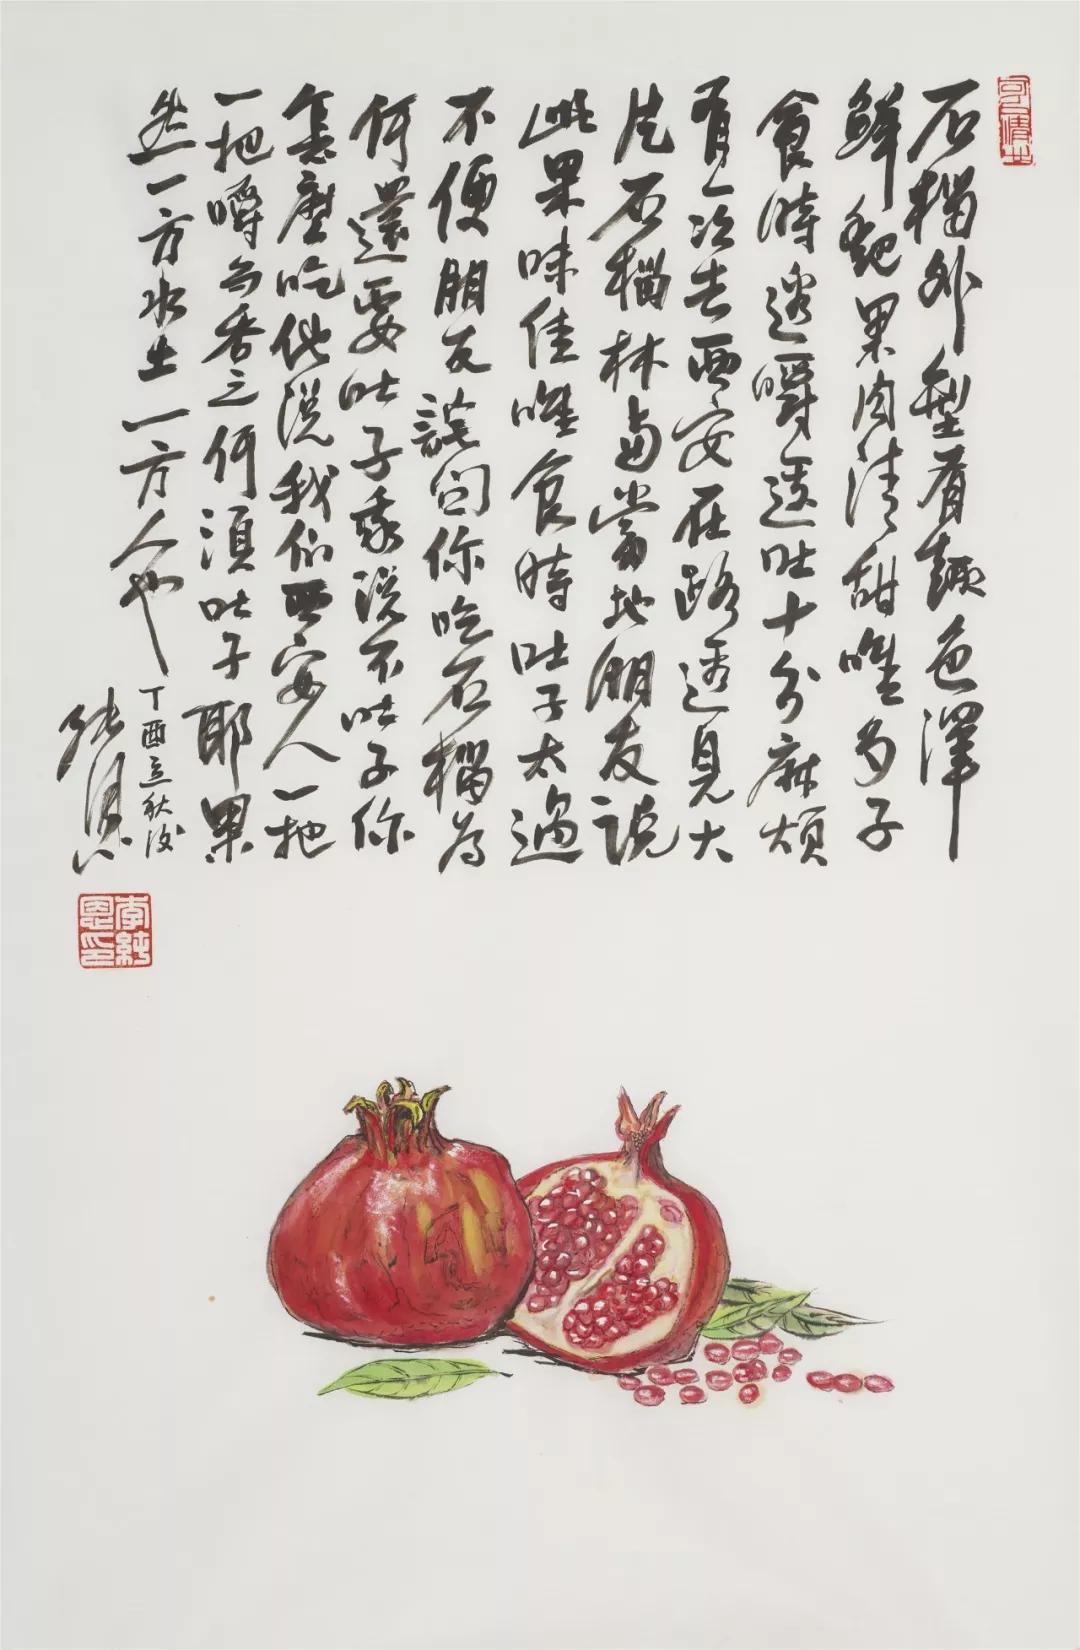 石榴外型有趣色泽
鲜艳果肉清甜唯多子
食时边嚼边吐十分麻烦
有一次去西安在路边见大
片石榴林与当地朋友说
此果味佳唯食时吐子太过
不便朋友诧问你吃石榴为
何还要吐子我说不吐子你
怎么吃他说我们西安人一把
一把嚼而吞之何须吐子耶果
然一方水土一方人也
丁酉立秋后
纯恩
李纯恩印